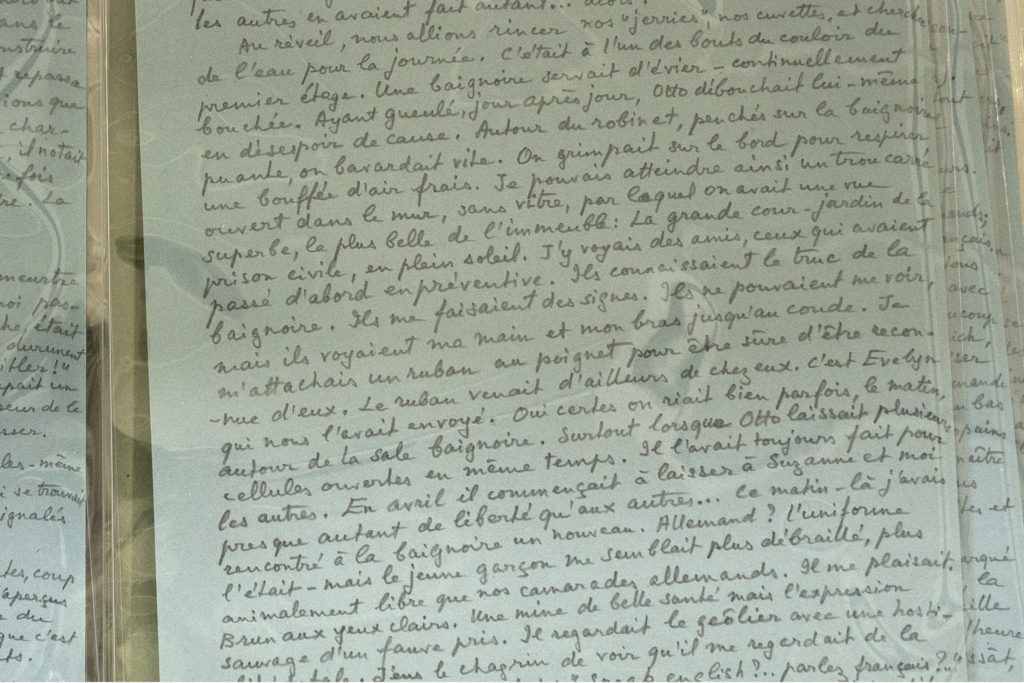 les autres en avaient fait autant...
Au réveil, nous allions rincer nos "jerries", nos cuvettes, et cherche
de l'eau pour la journée. C'était à l'un des bouts du couloir du
premier étage. Une baignoire servait d'évier - continuellement
bouchée. Ayant gueulé, jour après jour, Otto débouchait lui-même
en désespoir de cause. Autour du robinet, penchés sur la baignoire
puante, on bavardait vite. On grimpait sur le bord pour respirer
une bouffée d'air frais. Je pouvais atteindre ainsi un trou carré
ouvert dans le mur, sans vitre, par lequel on avait une vue
superbe, la plus belle de l'immeuble : La grande cour-jardin de la
prison civile, en plein soleil. J'y voyais des amis, ceux qui avaient
passé d'abord en préventive. Ils connaissaient le truc de la
baignoire. Ils me faisaient des signes. Ils ne pouvaient me voir,
mais ils voyaient ma main et mon bras jusqu'au coude. Je
m'attachais un ruban au poignet pour être sûre d'être recon-
-nue d'eux. Le ruban venait d'ailleurs de chez eux. C'est Evelyn
qui nous l'avait envoyé. Oui certes on riait bien parfois, le matin,
autour de la sale baignoire. Surtout lorsque Otto laissait plusieurs
cellules ouvertes en même temps. Il l'avait toujours fait pour
les autres. En avril il commençait à laisser à Suzanne et moi
presque autant de liberté qu'aux autres... Ce matin-là j'avais
rencontré à la baignoire un nouveau. Allemand ? l'uniforme
l'était - mais le jeune garçon me semblait plus débraillé, plus
animalement libre que nos camarades allemands. Il me plaisait.
Brun aux yeux clairs. Une mine de belle santé mais l'expression
sauvage d'un fauve pris. Il regardait le geôlier avec une hosti-
J'eus le chagrin de voir qu'il me regardait de la
english ?.. parlez français ?..."